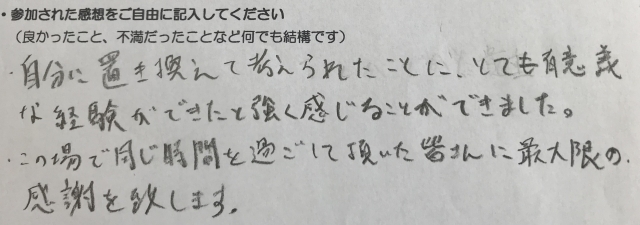 ・参加された感想をご自由に記入してください
（良かったこと、不満だったことなど何でも結構です）
・自分に置き換えて考えられたことに、とても有意義
な経験ができたと強く感じることができました。
・この場で同じ時間を過ごして頂いた皆さんに最大限の
感謝を致します。